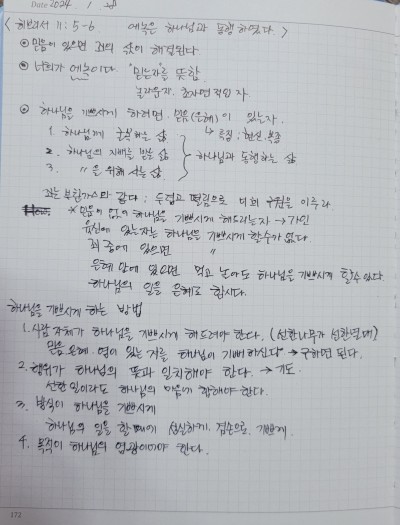 Date 2024. 1. 28
< 히브리서 11:5-6 에녹은 하나님과 동행하였다. >
믿음이 있으면 죄의 삯이 해결된다.
너희가 에녹이다. "믿는자"를 뜻함.
놀라운자. 초자연적인 자.
하나님을 기쁘시게 하려면. 믿음(은혜)이 있는자.
↳ 특징; 헌신, 복종
1. 하나님께 굴복하는 삶
2. 하나님의 지배를 받는 삶
3. 〃 을 위해 사는 삶
} 하나님과 동행하는 삶
죄는 부탄가스와 같다; 두렵고 떨림으로 너희 구원을 이루라
* 믿음이 없이 하나님을 기쁘시게 해드리는자 → 가인
육신에 있는자는 하나님을 기쁘시게 할수가 없다
죄 중에 있으면 〃
은혜 안에 있으면 먹고 놀아도 하나님을 기쁘시게 할수 있다.
하나님의 일을 은혜로 합시다.
하나님을 기쁘시게 하는 방법
1. 사람 자체가 하나님을 기쁘시게 해드려야 한다. (선한나무가 선한열매)
믿음. 은혜. 영이 있는 자를 하나님이 기뻐하신다 → 구하면 된다.
2. 행위가 하나님의 뜻과 일치해야 한다. → 기도.
선한 일이라도 하나님의 마음에 합해야 한다.
3. 방식이 하나님을 기쁘시게
하나님의 일을 할 때에 성실하게. 겸손으로. 기쁘게.
4. 목적이 하나님의 영광이어야 한다.
172